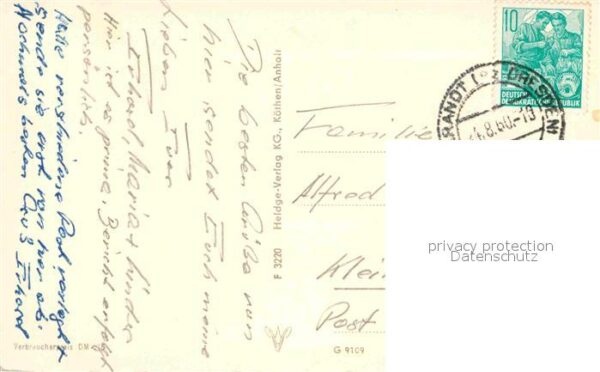 Die besten Grüße von
hier sendet Euch meine
Lieben Euer
Erhard, Maria + Kinder
Hier ist es prima. Bericht erfolgt
persönlich.
Habe verschiedene Post verlegt
sende sie erst von hier ab.
Nochmals besten Gruß Erhard
Verbraucherpreis DM
F 3220 Heldge-Verlag KG., Köthen/Anhalt
G 9109
10
DEUTSCHE
DEMOKRATISCHE REPUBLIK
BRANDT (Bz. DRESDEN)
8.60.-15
Familie
Alfred
Klei
Post
privacy protection
Datenschutz